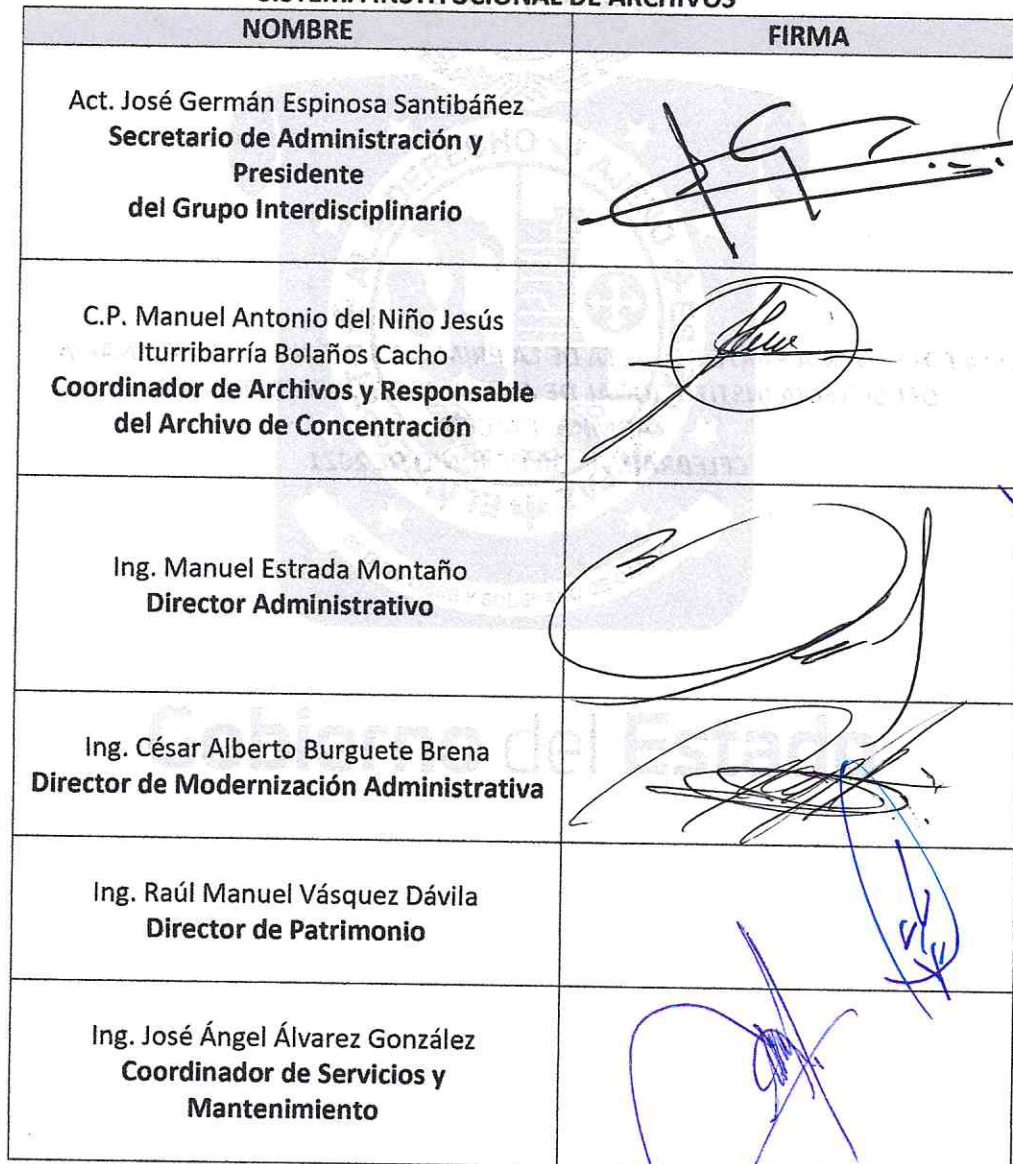 SISTEMA INSTITUCIONAL DE ARCHIVOS
NOMBRE
FIRMA
Act. José Germán Espinosa Santibáñez
Secretario de Administración y
Presidente
del Grupo Interdisciplinario
C.P. Manuel Antonio del Niño Jesús
Iturribarría Bolaños Cacho
Coordinador de Archivos y Responsable
del Archivo de Concentración
Ing. Manuel Estrada Montaño
Director Administrativo
Ing. César Alberto Burguete Brena
Director de Modernización Administrativa
Ing. Raúl Manuel Vásquez Dávila
Director de Patrimonio
Ing. José Ángel Álvarez González
Coordinador de Servicios y
Mantenimiento
Gobierno del Estado